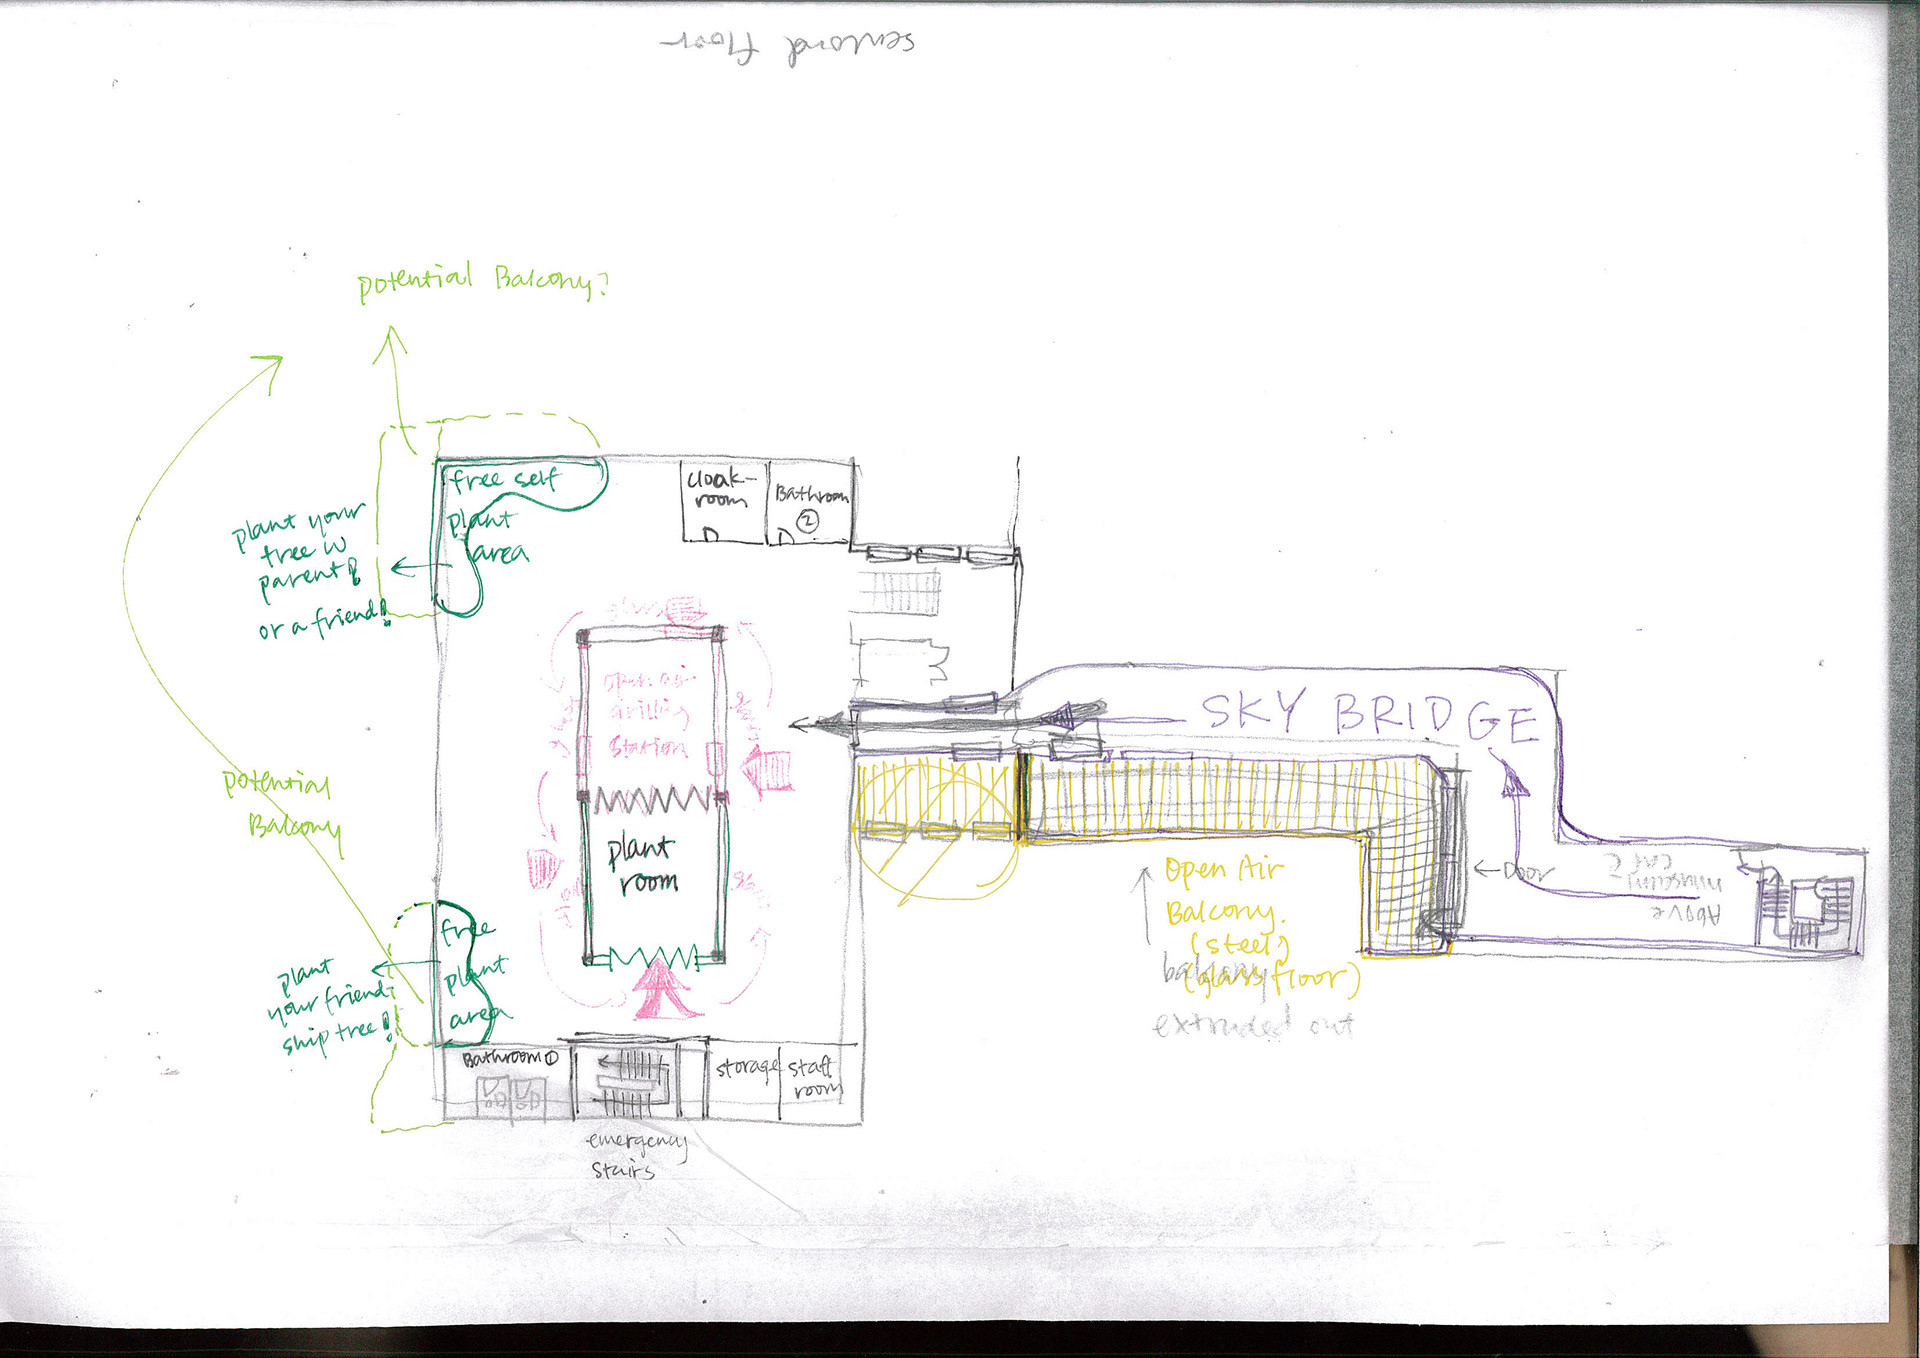 second floor
potential Balcony?
free self
plant
area
cloak-
room
Bathroom
2
plant your
tree w
parent!
or a friend!
glass
open air
grilling
station
glass
glass
SKY BRIDGE
potential
Balcony
plant
room
glass
glass
Open Air
Balcony.
(steel)
(glass floor)
balcony
extruded out
←Door
Above
museum
cafe
free
plant
area
plant
your friend
ship tree!
Bathroom 1
storage
staff
room
emergency
stairs